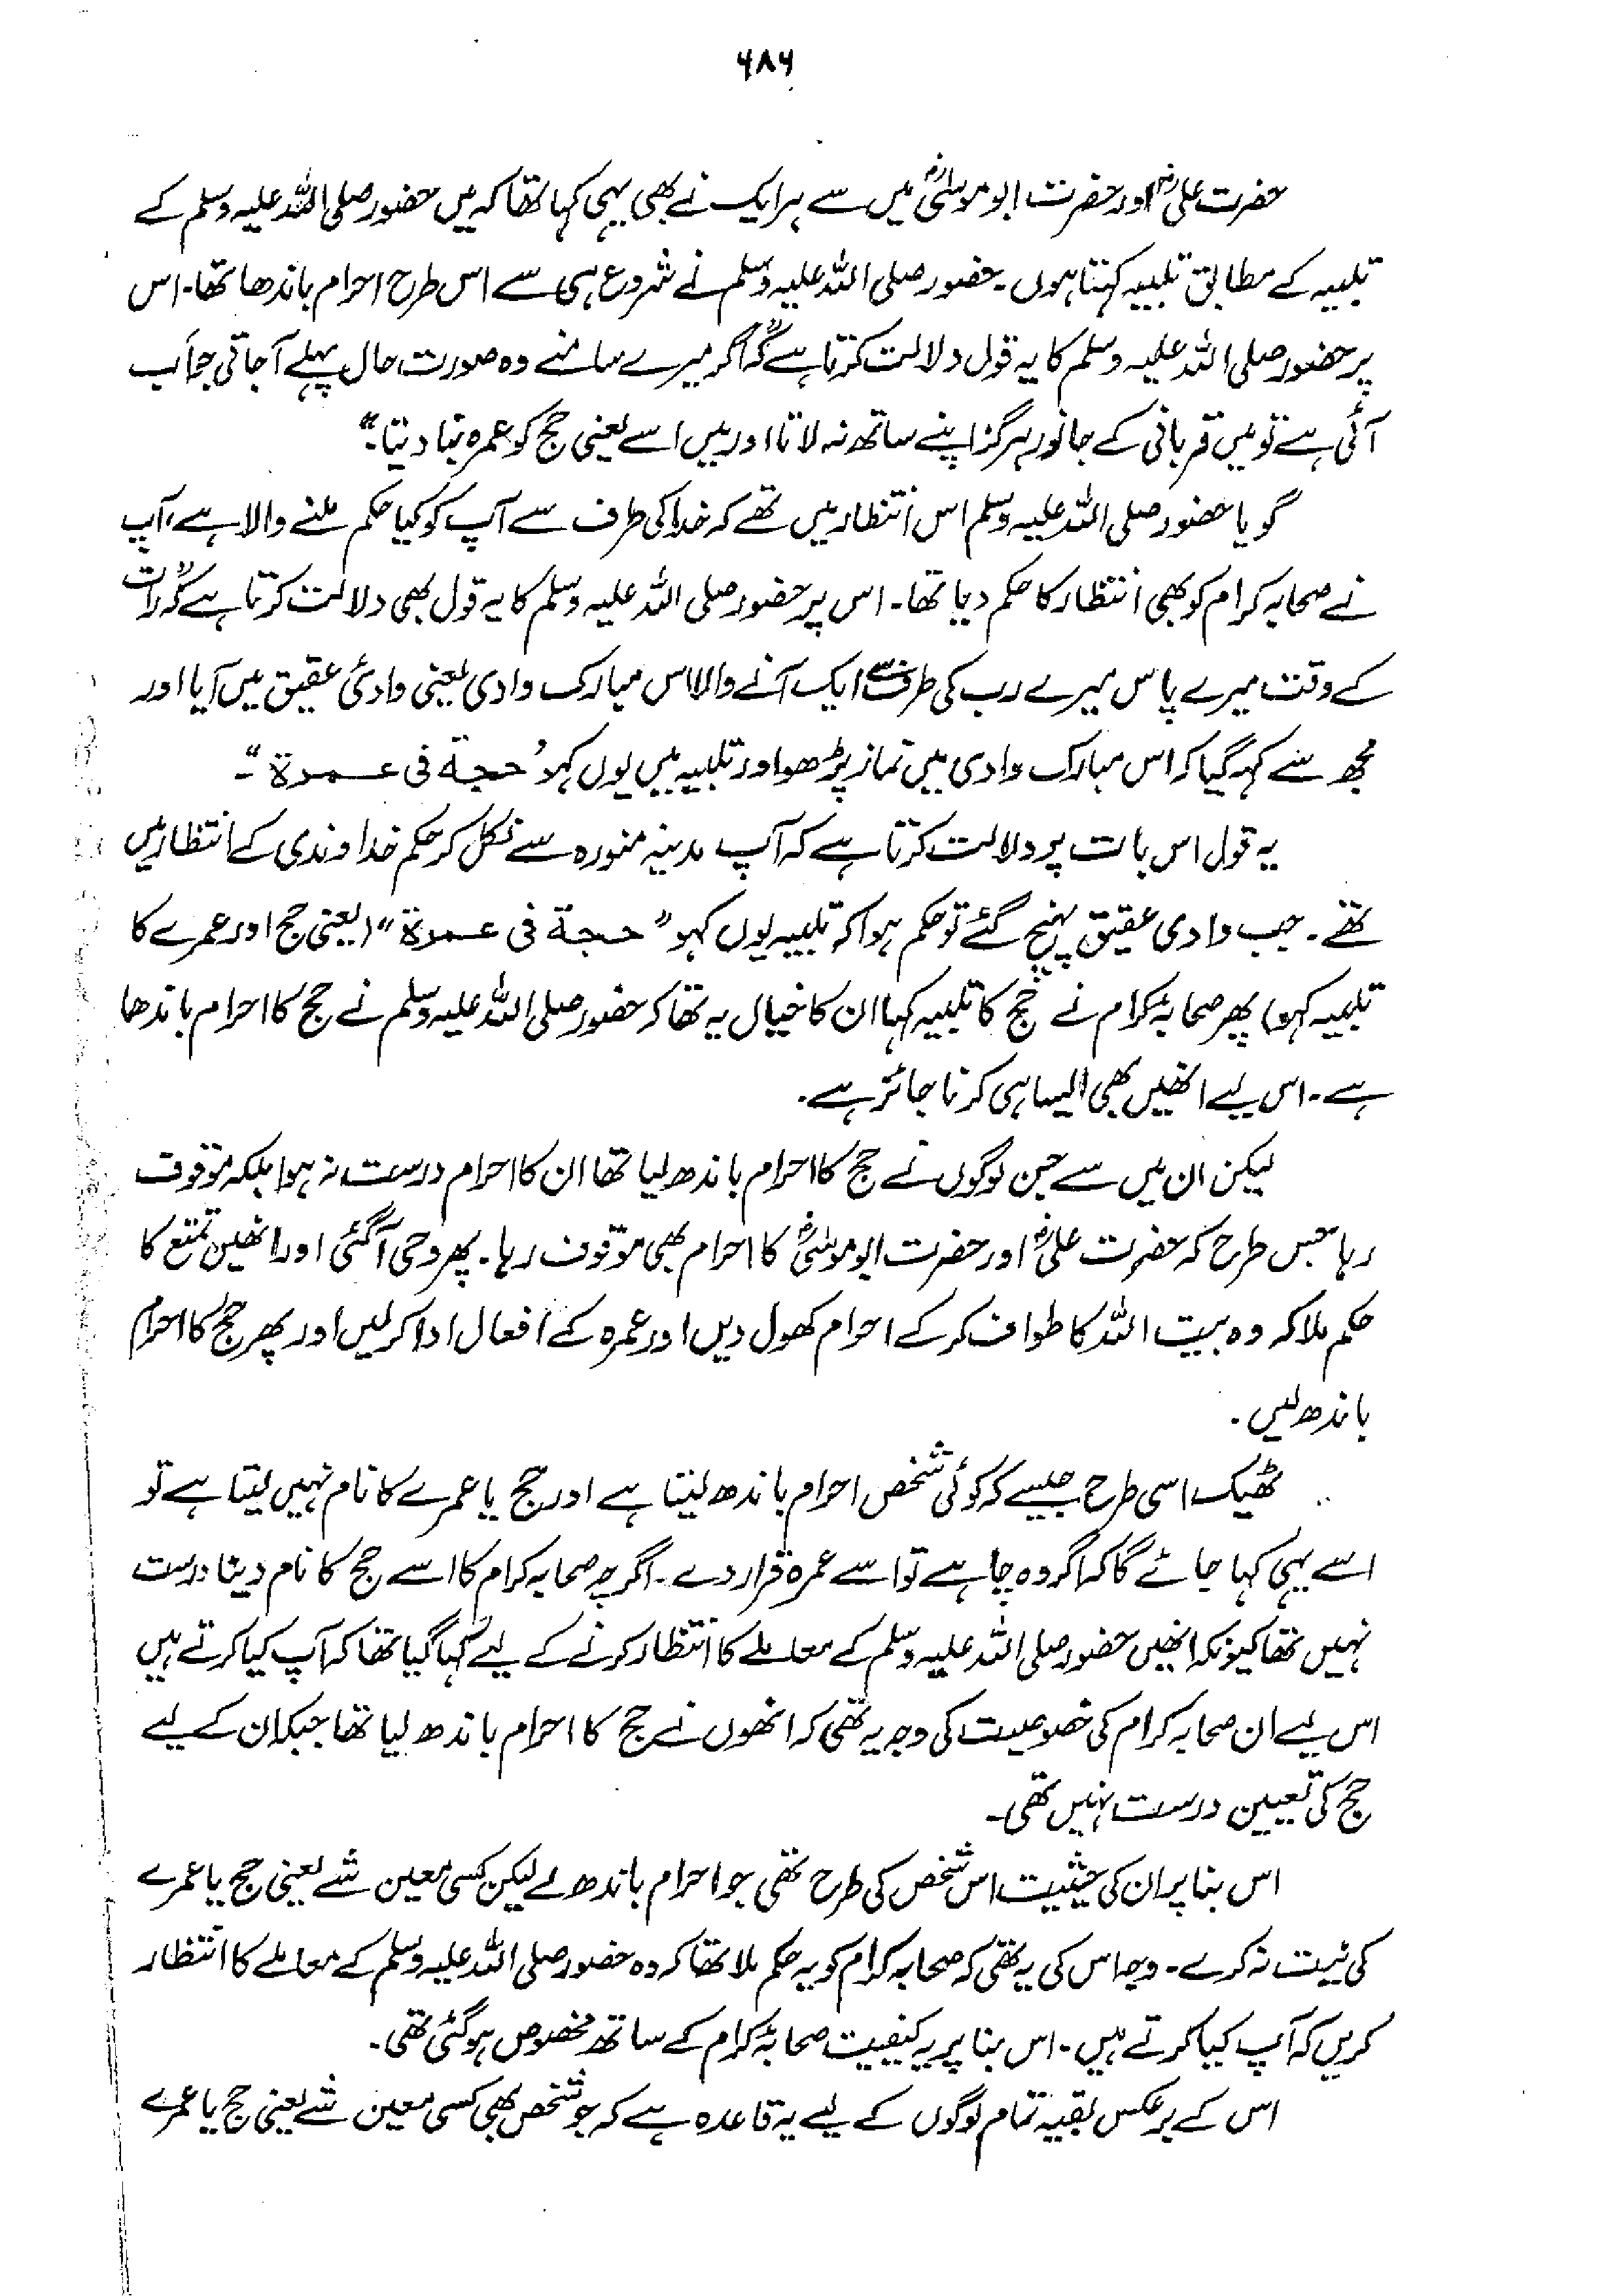 ۶۸۶
حضرت علیؓ اور حضرت ابو موسیٰؓ میں سے ہر ایک نے بھی یہی کہا تھا کہ میں حضور صلی اللہ علیہ وسلم کے
تلبیہ کے مطابق تلبیہ کہتا ہوں۔ حضور صلی اللہ علیہ وسلم نے شروع ہی سے اس طرح احرام باندھا تھا۔ اس
پر حضور صلی اللہ علیہ وسلم کا یہ قول دلالت کرتا ہے کہ "اگر میرے سامنے وہ صورت حال پہلے آجاتی جو اب
آئی ہے تو میں قربانی کے جانور ہرگز اپنے ساتھ نہ لاتا اور میں اسے یعنی حج کو عمرہ بنا دیتا۔"
گویا حضور صلی اللہ علیہ وسلم اس انتظار میں تھے کہ خدا کی طرف سے آپ کو کیا حکم ملنے والا ہے، آپ
نے صحابہ کرام کو بھی انتظار کا حکم دیا تھا۔ اس پر حضور صلی اللہ علیہ وسلم کا یہ قول بھی دلالت کرتا ہے کہ "رات
کے وقت میرے پاس میرے رب کی طرف سے ایک آنے والا اس مبارک وادی یعنی وادئ عقیق میں آیا اور
مجھ سے کہہ گیا کہ اس مبارک وادی میں نماز پڑھو اور تلبیہ میں یوں کہو ’حجة فی عمرة"۔
یہ قول اس بات پر دلالت کرتا ہے کہ آپ مدینہ منورہ سے نکل کر حکم خداوندی کے انتظار میں
تھے۔ جب وادی عقیق پہنچ گئے تو حکم ہوا کہ تلبیہ یوں کہو "حجة فی عمرة" (یعنی حج اور عمرے کا
تلبیہ کہو) پھر صحابۂ کرام نے حج کا تلبیہ کہا ان کا خیال یہ تھا کہ حضور صلی اللہ علیہ وسلم نے حج کا احرام باندھا
ہے۔ اس لیے انھیں بھی ایسا ہی کرنا جائز ہے۔
لیکن ان میں سے جن لوگوں نے حج کا احرام باندھ لیا تھا ان کا احرام درست نہ ہوا بلکہ موقوف
رہا جس طرح کہ حضرت علیؓ اور حضرت ابو موسیٰؓ کا احرام بھی موقوف رہا۔ پھر وحی آگئی اور انھیں تمتع کا
حکم ملا کہ وہ بیت اللہ کا طواف کر کے احرام کھول دیں اور عمرہ کے افعال ادا کر لیں اور پھر حج کا احرام
باندھ لیں۔
ٹھیک اسی طرح جیسے کہ کوئی شخص احرام باندھ لیتا ہے اور حج یا عمرے کا نام نہیں لیتا ہے تو
اسے یہی کہا جائے گا کہ اگر وہ چاہے تو اسے عمرہ قرار دے۔ اگرچہ صحابہ کرام کا اسے حج کا نام دینا درست
نہیں تھا کیونکہ انھیں حضور صلی اللہ علیہ وسلم کے معاملے کا انتظار کرنے کے لیے کہا گیا تھا کہ آپ کیا کرتے ہیں
اس لیے ان صحابہ کرام کی خصوصیت کی وجہ یہ تھی کہ انھوں نے حج کا احرام باندھ لیا تھا جبکہ ان کے لیے
حج کی تعیین درست نہیں تھی۔
اس بنا پر ان کی حیثیت اس شخص کی طرح تھی جو احرام باندھ لے لیکن کسی معین شے یعنی حج یا عمرے
کی نیت نہ کرے۔ وجہ اس کی یہ تھی کہ صحابہ کرام کو یہ حکم ملا تھا کہ وہ حضور صلی اللہ علیہ وسلم کے معاملے کا انتظار
کریں کہ آپ کیا کرتے ہیں۔ اس بنا پر یہ کیفیت صحابۂ کرام کے ساتھ مخصوص ہو گئی تھی۔
اس کے برعکس بقیہ تمام لوگوں کے لیے یہ قاعدہ ہے کہ جو شخص بھی کسی معین شے یعنی حج یا عمرے